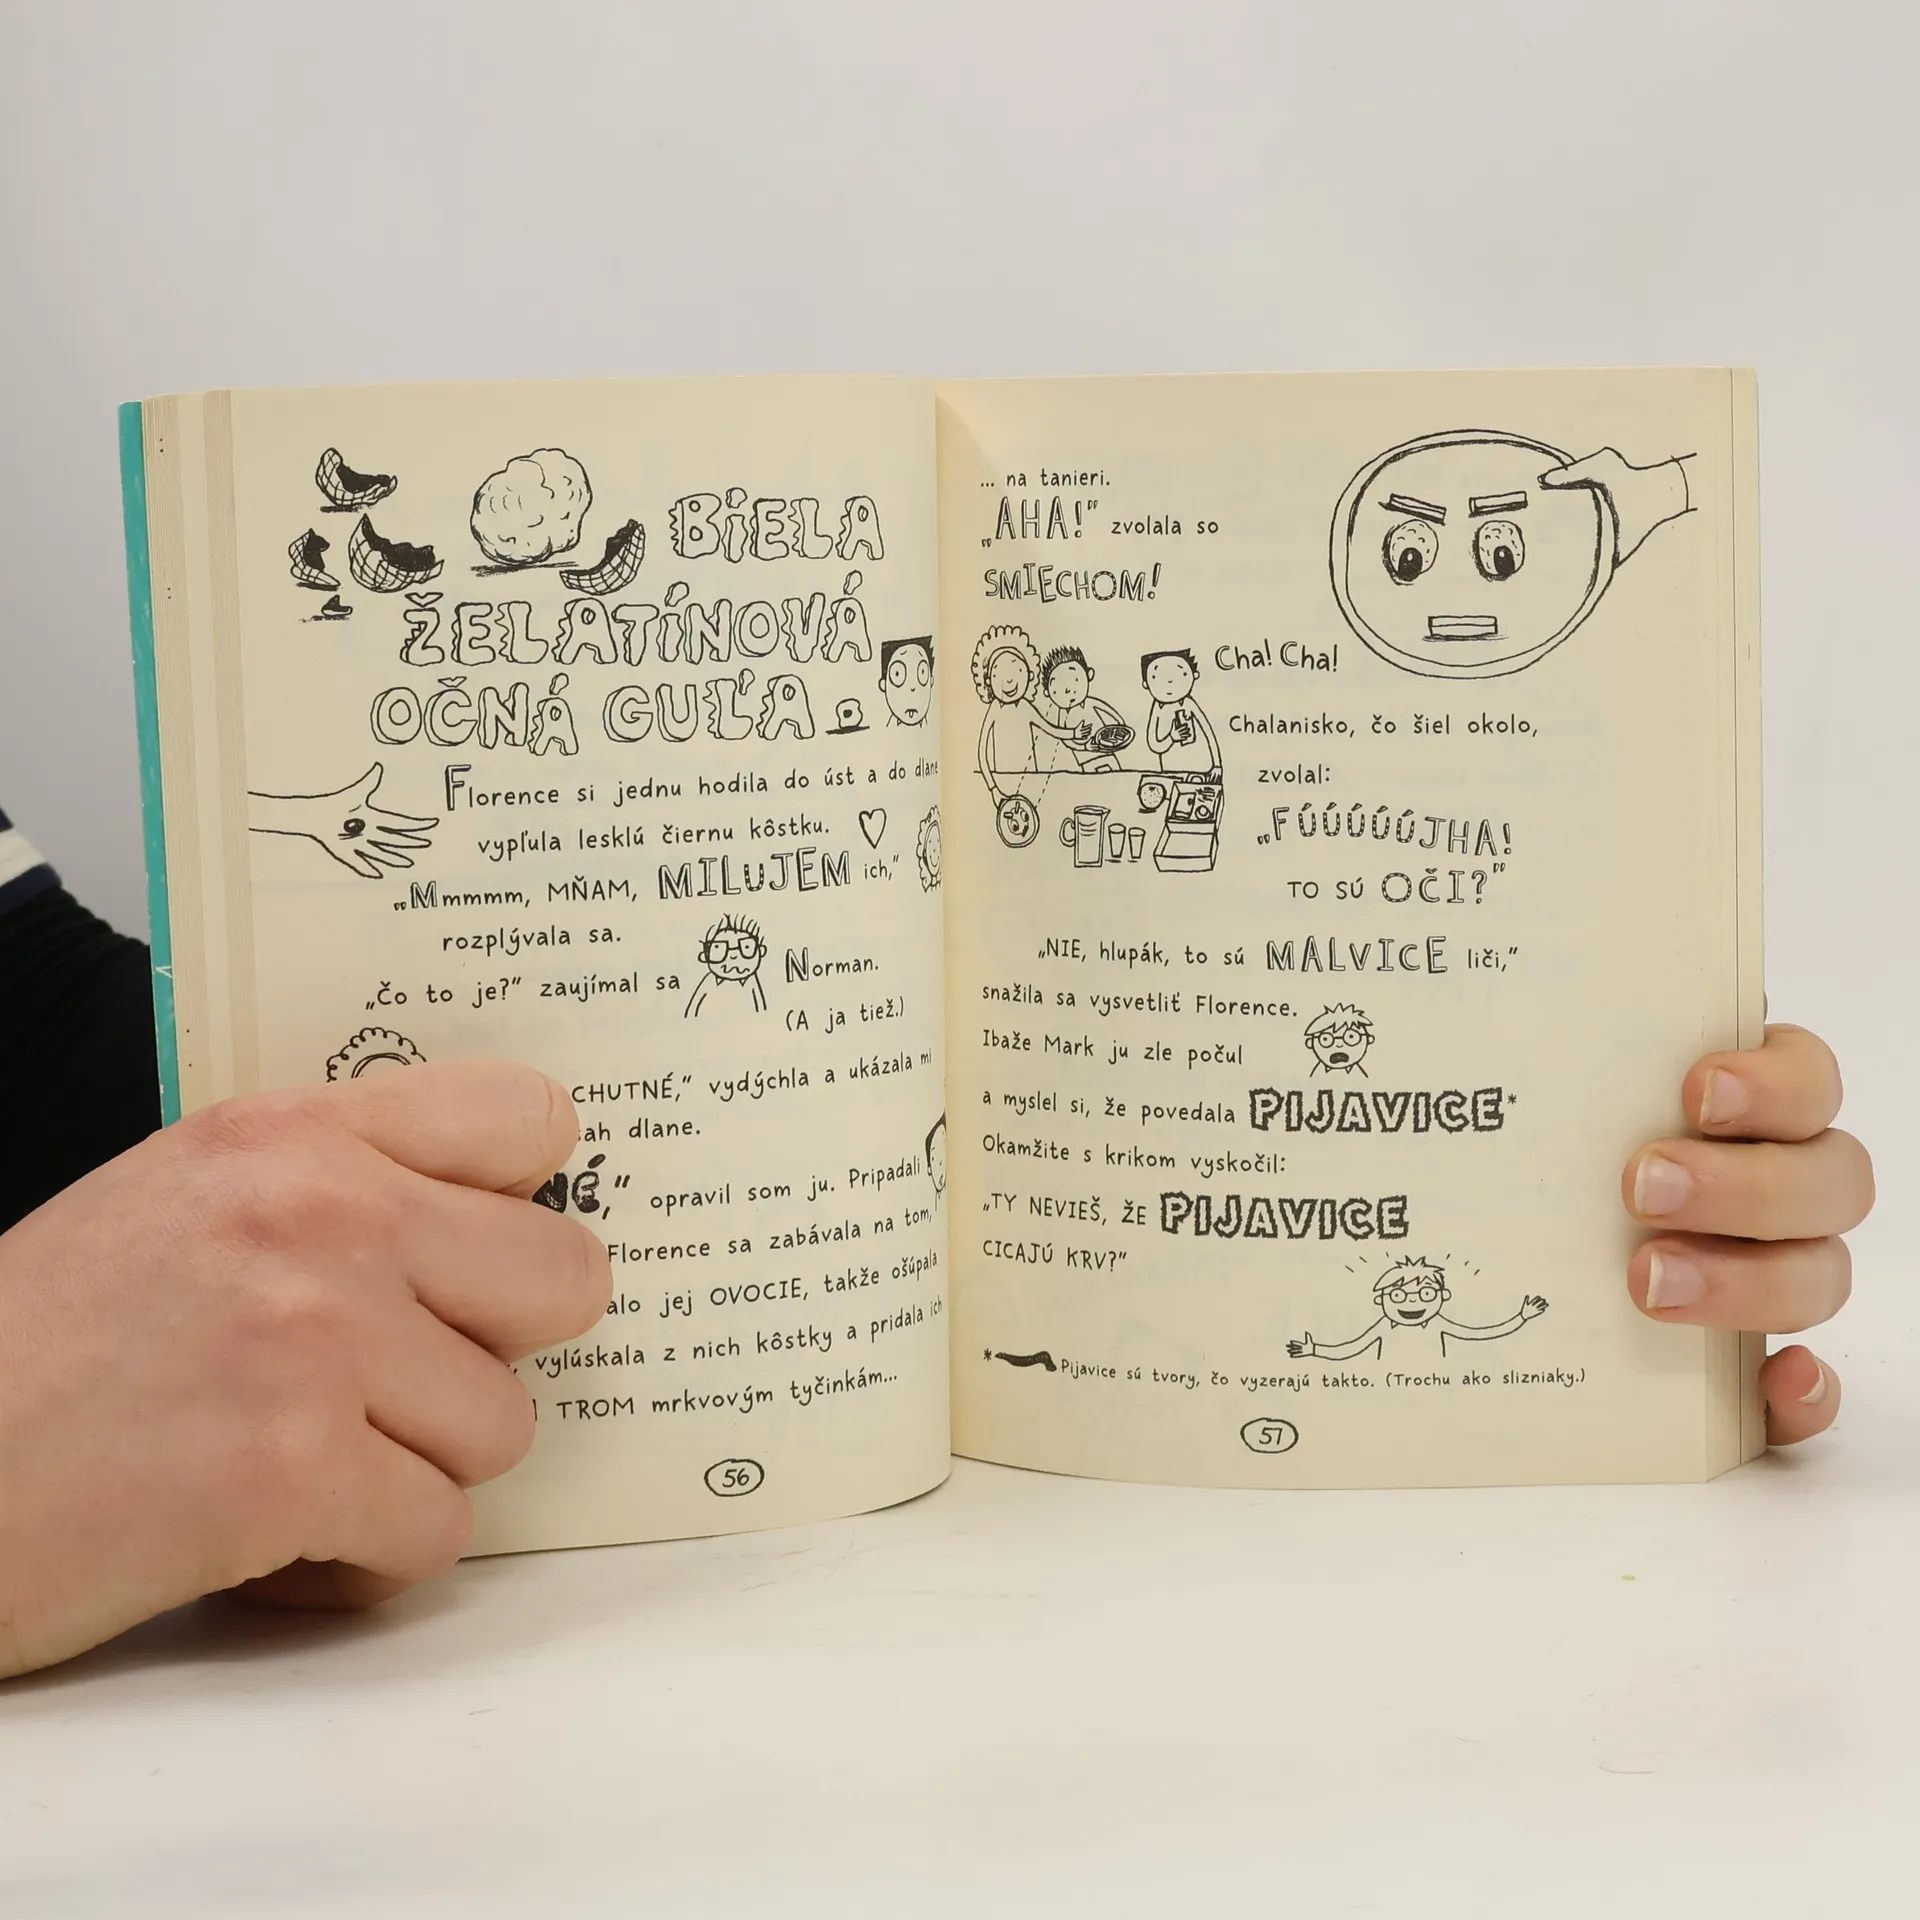 BIELA
ŽELATÍNOVÁ
OČNÁ GUĽA
Florence si jednu hodila do úst a do dlane
vypľula lesklú čiernu kôstku.
„Mmmmm, MŇAM, MILUJEM ich,“
rozplývala sa.
„Čo to je?“ zaujímal sa Norman.
(A ja tiež.)
CHUTNÉ,“ vydýchla a ukázala mi
dlane.
opravil som ju. Pripadali
Florence sa zabávala na tom,
jej OVOCIE, takže ošúpala
vylúskala z nich kôstky a pridala ich
TROM mrkvovým tyčinkám...
56
... na tanieri.
„AHA!“ zvolala so
SMIECHOM!
Cha! Cha!
Chalanisko, čo šiel okolo,
zvolal:
„FÚÚÚÚÚJHA!
TO SÚ OČI?“
„NIE, hlupák, to sú MALVICE liči,“
snažila sa vysvetliť Florence.
Ibaže Mark ju zle počul
a myslel si, že povedala PIJAVICE*
Okamžite s krikom vyskočil:
„TY NEVIEŠ, ŽE PIJAVICE
CICAJÚ KRV?“
* Pijavice sú tvory, čo vyzerajú takto. (Trochu ako slizniaky.)
57